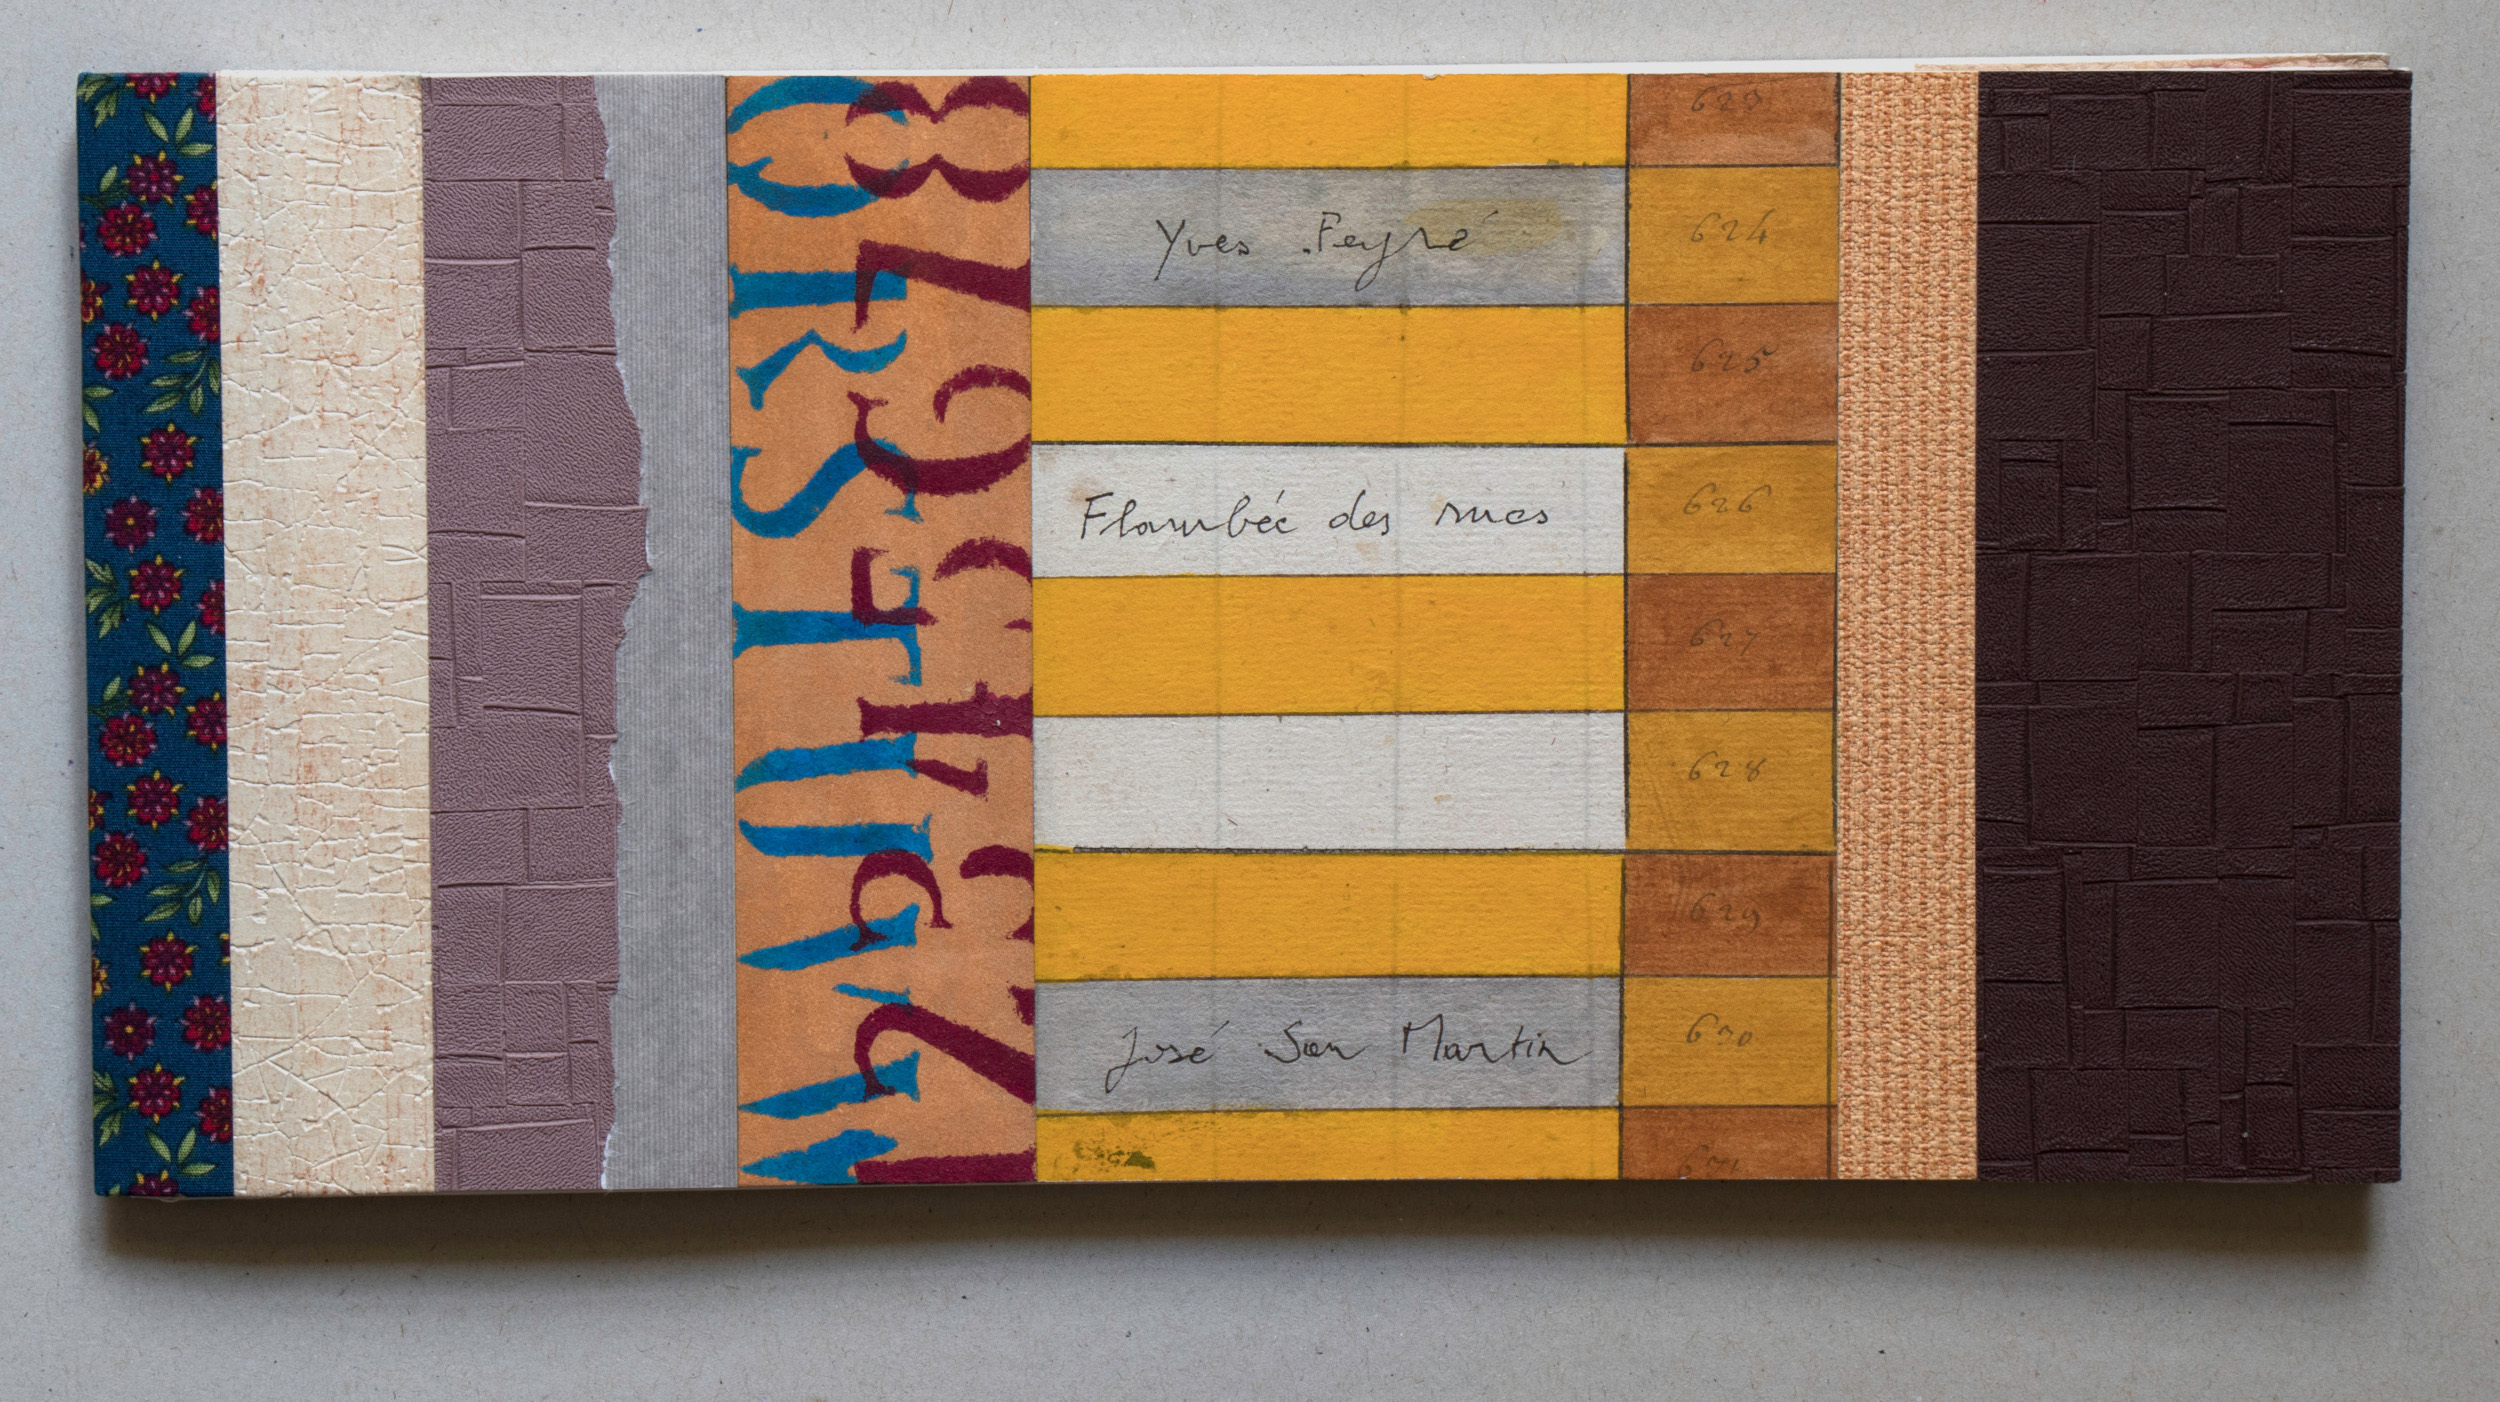 623
Yves Peyré
624
625
Flambée des rues
626
627
628
629
José San Martin
630
631
QRSTUVW